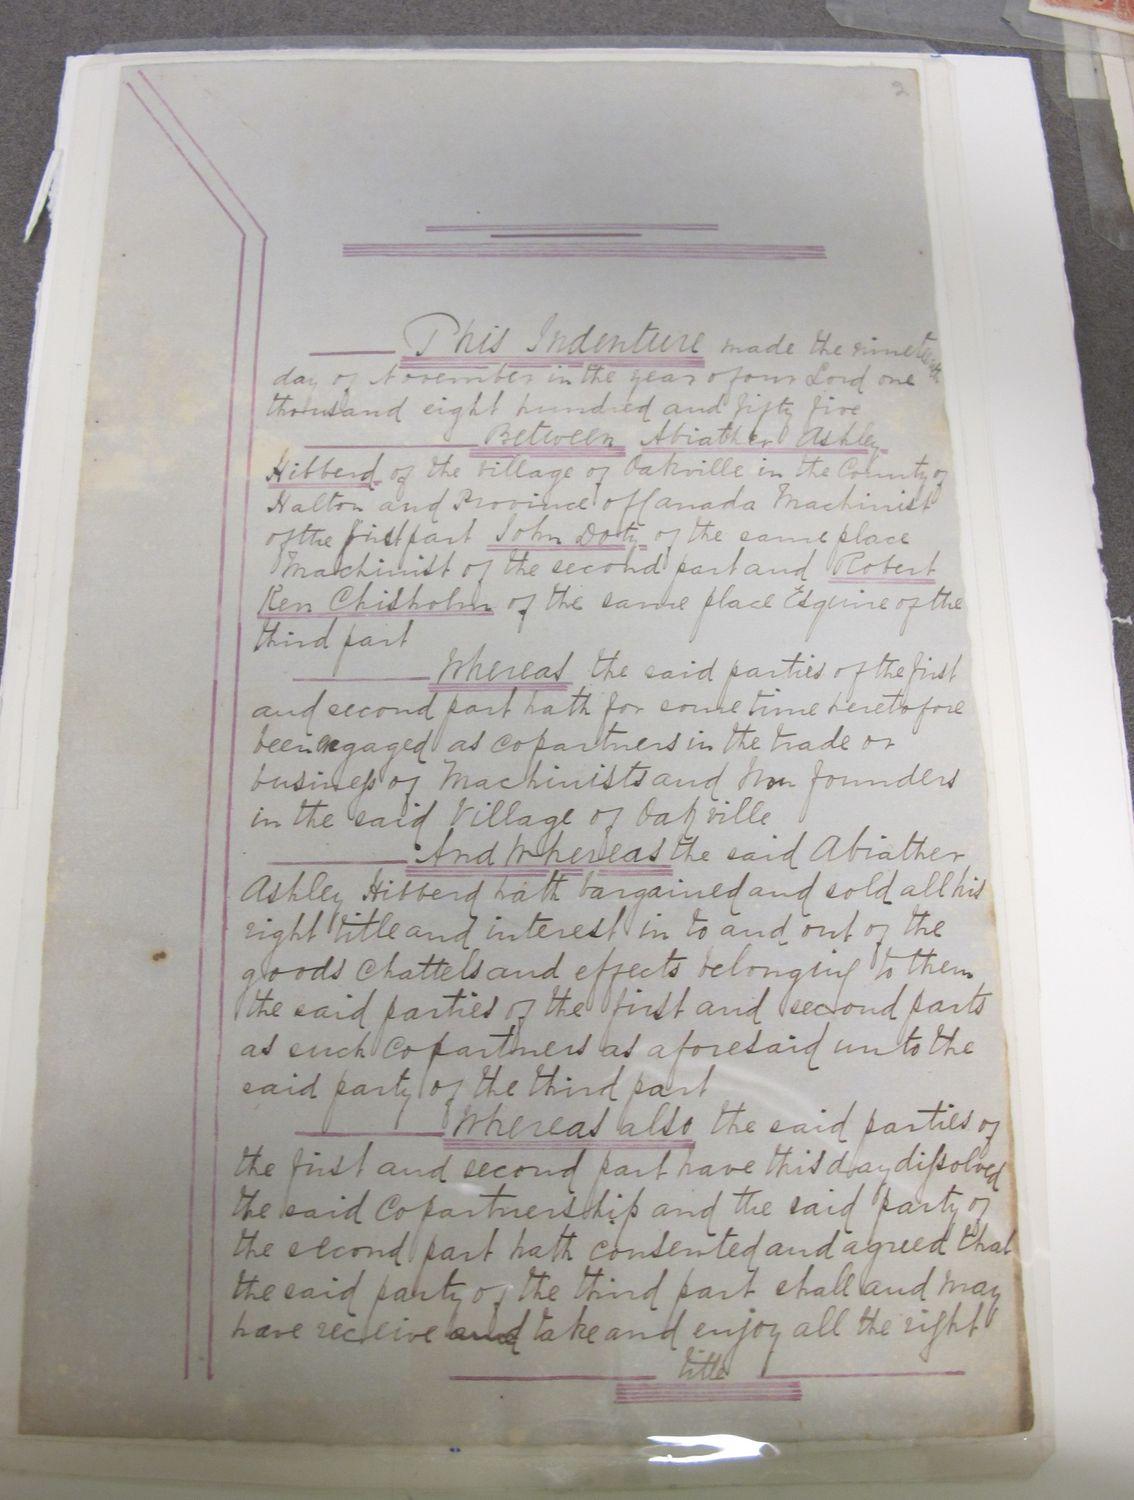 2
This Indenture made the nineteenth
day of November in the year of our Lord one
thousand eight hundred and fifty five
Between Abiather Ashley
Hibberd of the village of Oakville in the County of
Halton and Province of Canada Machinist
of the first part John Doty of the same place
Machinist of the second part and Robert
Ker Chisholm of the same place Esquire of the
third part
Whereas the said parties of the first
and second part hath for some time heretofore
been engaged as copartners in the trade or
business of Machinists and Iron founders
in the said Village of Oakville
And Whereas the said Abiather
Ashley Hibberd hath bargained and sold all his
right title and interest in to and out of the
goods Chattels and effects belonging to them
the said parties of the first and second parts
as such Copartners as aforesaid unto the
said party of the third part
Whereas also the said parties of
the first and second part have this day dissolved
the said Copartnership and the said party of
the second part hath consented and agreed that
the said party of the third part shall and may
have receive and take and enjoy all the right
title